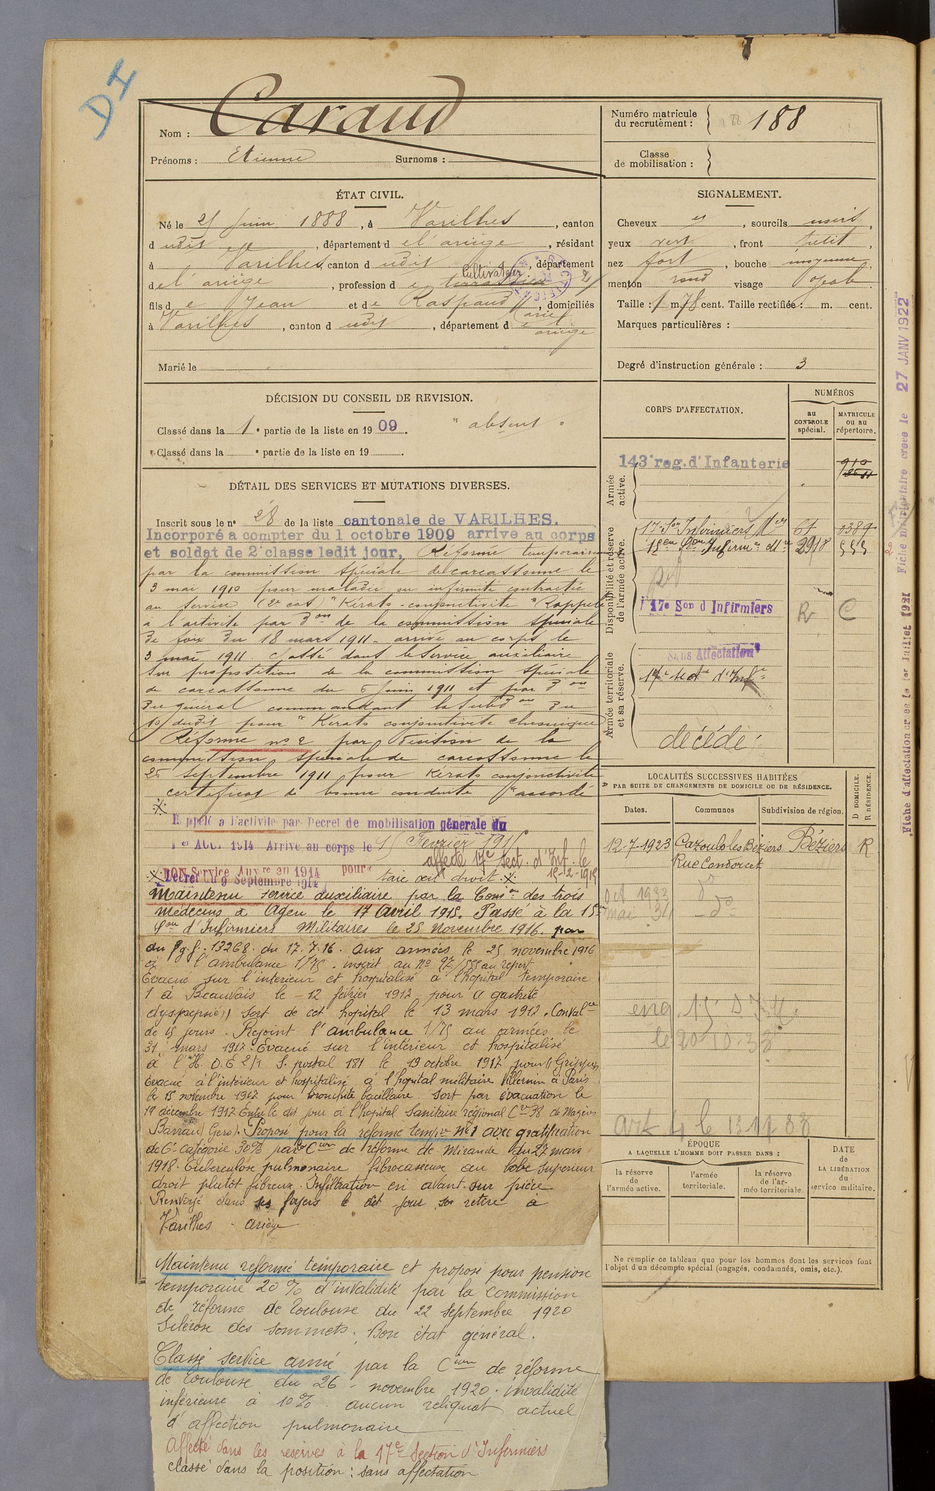 DI
Nom : Caraud
Prénoms : Etienne Surnoms :
Numéro matricule du recrutement : 188
Classe de mobilisation :
ÉTAT CIVIL.
Né le 25 Juin 1888, à Varilhes, canton
dudit, département de l'ariège, résidant
à Varilhes, canton dudit, département
de l'ariège, profession de Cultivateur
fils de Jean et de Raspaud Marie, domiciliés
à Varilhes, canton dudit, département d ariège
Marié le
SIGNALEMENT.
Cheveux et, sourcils noirs,
yeux vert, front petit,
nez fort, bouche moyenne,
menton rond visage ovale
Taille : 1 m 78 cent. Taille rectifiée : m. cent.
Marques particulières :
Degré d'instruction générale : 3
DÉCISION DU CONSEIL DE REVISION.
Classé dans la 1e partie de la liste en 1909. "absent"
Classé dans la e partie de la liste en 19 .
DÉTAIL DES SERVICES ET MUTATIONS DIVERSES.
Inscrit sous le n° 28 de la liste cantonale de VARILHES.
Incorporé a compter du 1 octobre 1909 arrive au corps
et soldat de 2e classe ledit jour, Réformé temporairement
par la commission spéciale de carcassonne le
3 mai 1910 pour maladie ou infirmité contractée
au service (2e cat) "Kérato-conjonctivite" Rappelé
a l'activité par Don de la commission spéciale
de foix du 18 mars 1911 - arrivé au corps le
3 mai 1911 Classé dans le service auxiliaire
sur proposition de la commission spéciale
de carcassonne du 6 juin 1911 et par Don
du général commandant la Subdon du
10 dudit pour "Kérato conjonctivite chronique"
Réforme n° 2 par décision de la
commission spéciale de carcassonne le
25 septembre 1911 pour Kérato conjonctivite
certificat de bonne conduite "accordé"
Rappelé a l'activité par Decret de mobilisation générale du
1er AOUT 1914 Arrive au corps le 15 Fevrier 1915
affecté 17e sect. d'Inf. le 15-2-1915
Bon Service Auxre en 1914 pour taie œil droit
Décret du 9 Septembre 1914
Maintenu service auxiliaire par la Comon des trois
médecins d'Agen le 17 avril 1915. Passé à la 15e
Son d'Infirmiers Militaires le 25 Novembre 1916. par
du Pgf. 13268 du 17.7.16 aux armées le 25 novembre 1916
à l'ambulance 1/75 . inscrit au N° 97/555 au répert.
Evacué sur l'intérieur et hospitalisé à l'hopital temporaire
1 à Beauvais le 12 février 1917 pour "gastrite
dyspepsie" sort de cet hopital le 13 mars 1917. Convalce
de 15 jours. Rejoint l'ambulance 1/75 au armées le
31 mars 1917. Evacué sur l'intérieur et hospitalisé
à l'H.O.E 2/1 S. postal 181 le 19 octobre 1917 pour "Grippe"
Evacué à l'intérieur et hospitalisé à l'hopital militaire Villemin à Paris
le 15 novembre 1917 pour bronchite bacillaire. Sort par évacuation le
19 décembre 1917 Entre le dit jour à l'hopital Sanitaire régional
Barran (Gers). Proposé pour la réforme tempre N°1 avec gratification
de 6e catégorie 30% par la Cion de réforme de Mirande du 27 mars
1918. Tuberculose pulmonaire fibrocaséeuse au lobe supérieur
droit plutôt fibreux. Infiltration en avant
Renvoyé dans ses foyers le dit jour se retire à
Varilhes - ariège
Maintenu reformé temporaire et proposé pour pension
temporaire 20% d'invalidité par la Commission
de réforme de Toulouse du 22 septembre 1920
Sclérose des sommets. Bon état général.
Classé service armé par la Cion de réforme
de Toulouse du 26 novembre 1920. invalidité
inférieure à 10% aucun reliquat actuel
d'affection pulmonaire
Affecté dans les réserves à la 17e Section d'Infirmiers
classé dans la position : sans affectation
CORPS D'AFFECTATION.
NUMÉROS
au CONTROLE spécial.
MATRICULE ou au répertoire.
Armée active.
143e reg. d'Infanterie 910
Disponibilité et réserve de l'armée active.
17e Son Infirmiers Mres 67 1389
15eme Son Infirmrs Mres 2918 555
17e Son d Infirmiers R C
Armée territoriale et sa réserve.
Sans Affectation
décédé
LOCALITÉS SUCCESSIVES HABITÉES
PAR SUITE DE CHANGEMENTS DE DOMICILE OU DE RÉSIDENCE.
Dates. Communes Subdivision de région. D DOMICILE. R RÉSIDENCE.
12-7-1923 Cazouls les Béziers Béziers R
Rue Condorcet
Oct 1933 do
mai 34 do
le 20-10-38
ÉPOQUE
A LAQUELLE L'HOMME DOIT PASSER DANS :
la réserve de l'armée active.
l'armée territoriale.
la réserve de l'armée territoriale.
DATE de LA LIBÉRATION du service militaire.
Ne remplir ce tableau que pour les hommes dont les services font
l'objet d'un décompte spécial (engagés, condamnés, omis, etc.).
Fiche d'affectation créée le 1er Juillet 1921
27 JANV 1922